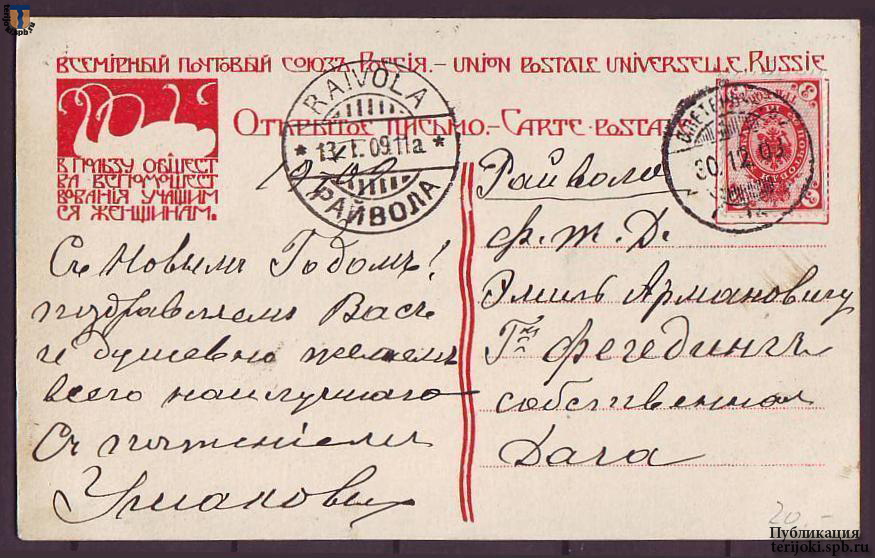 ВСЕМIРНЫЙ ПОЧТОВЫЙ СОЮЗЪ РОССIЯ.— UNION POSTALE UNIVERSELLE RUSSIE
ОТКРЫТОЕ ПИСЬМО.— CARTE POSTA
В ПОЛЬЗУ ОБЩЕСТ
ВА ВСПОМОЩЕСТ
ВОВАНIЯ УЧАЩИМ
СЯ ЖЕНЩИНАМ.
RAIVOLA
13.I.09.11a
РАЙВОЛА
30.12.08
3
3
Съ Новымъ Годомъ!
поздравляемъ Васъ
и душевно желаемъ
всего наилучшаго
Съ почтенiемъ
Райвола
ф. ж. д.
Эмилъ Армановичу
Г-жѣ Фегедингъ
собственная
Дача
20.-
Публикация
terijoki.spb.ru